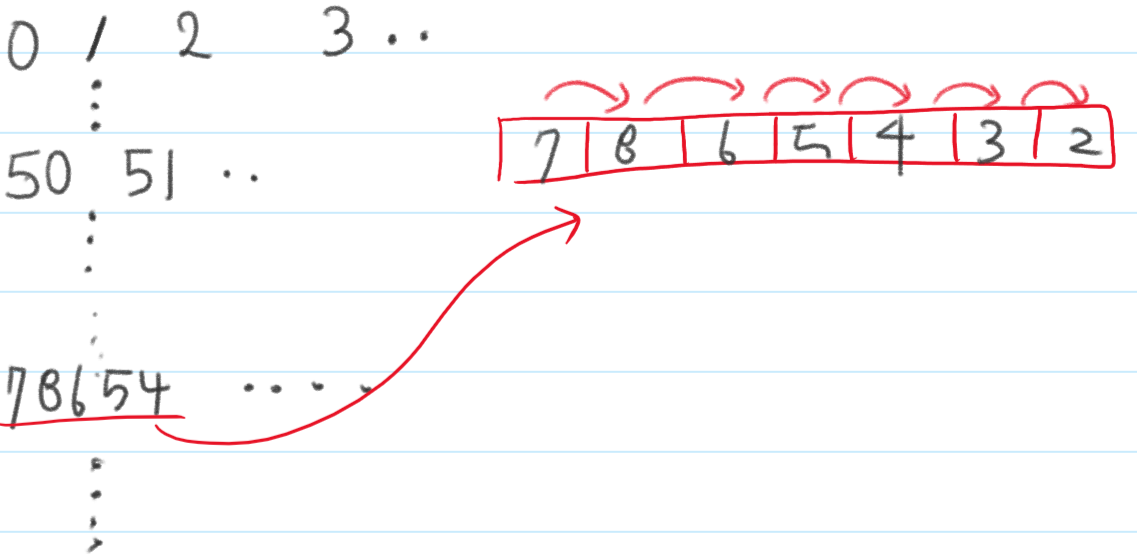 0 1 2 3 ..
50 51 ..
7 8 6 5 4 3 2
78654 .....